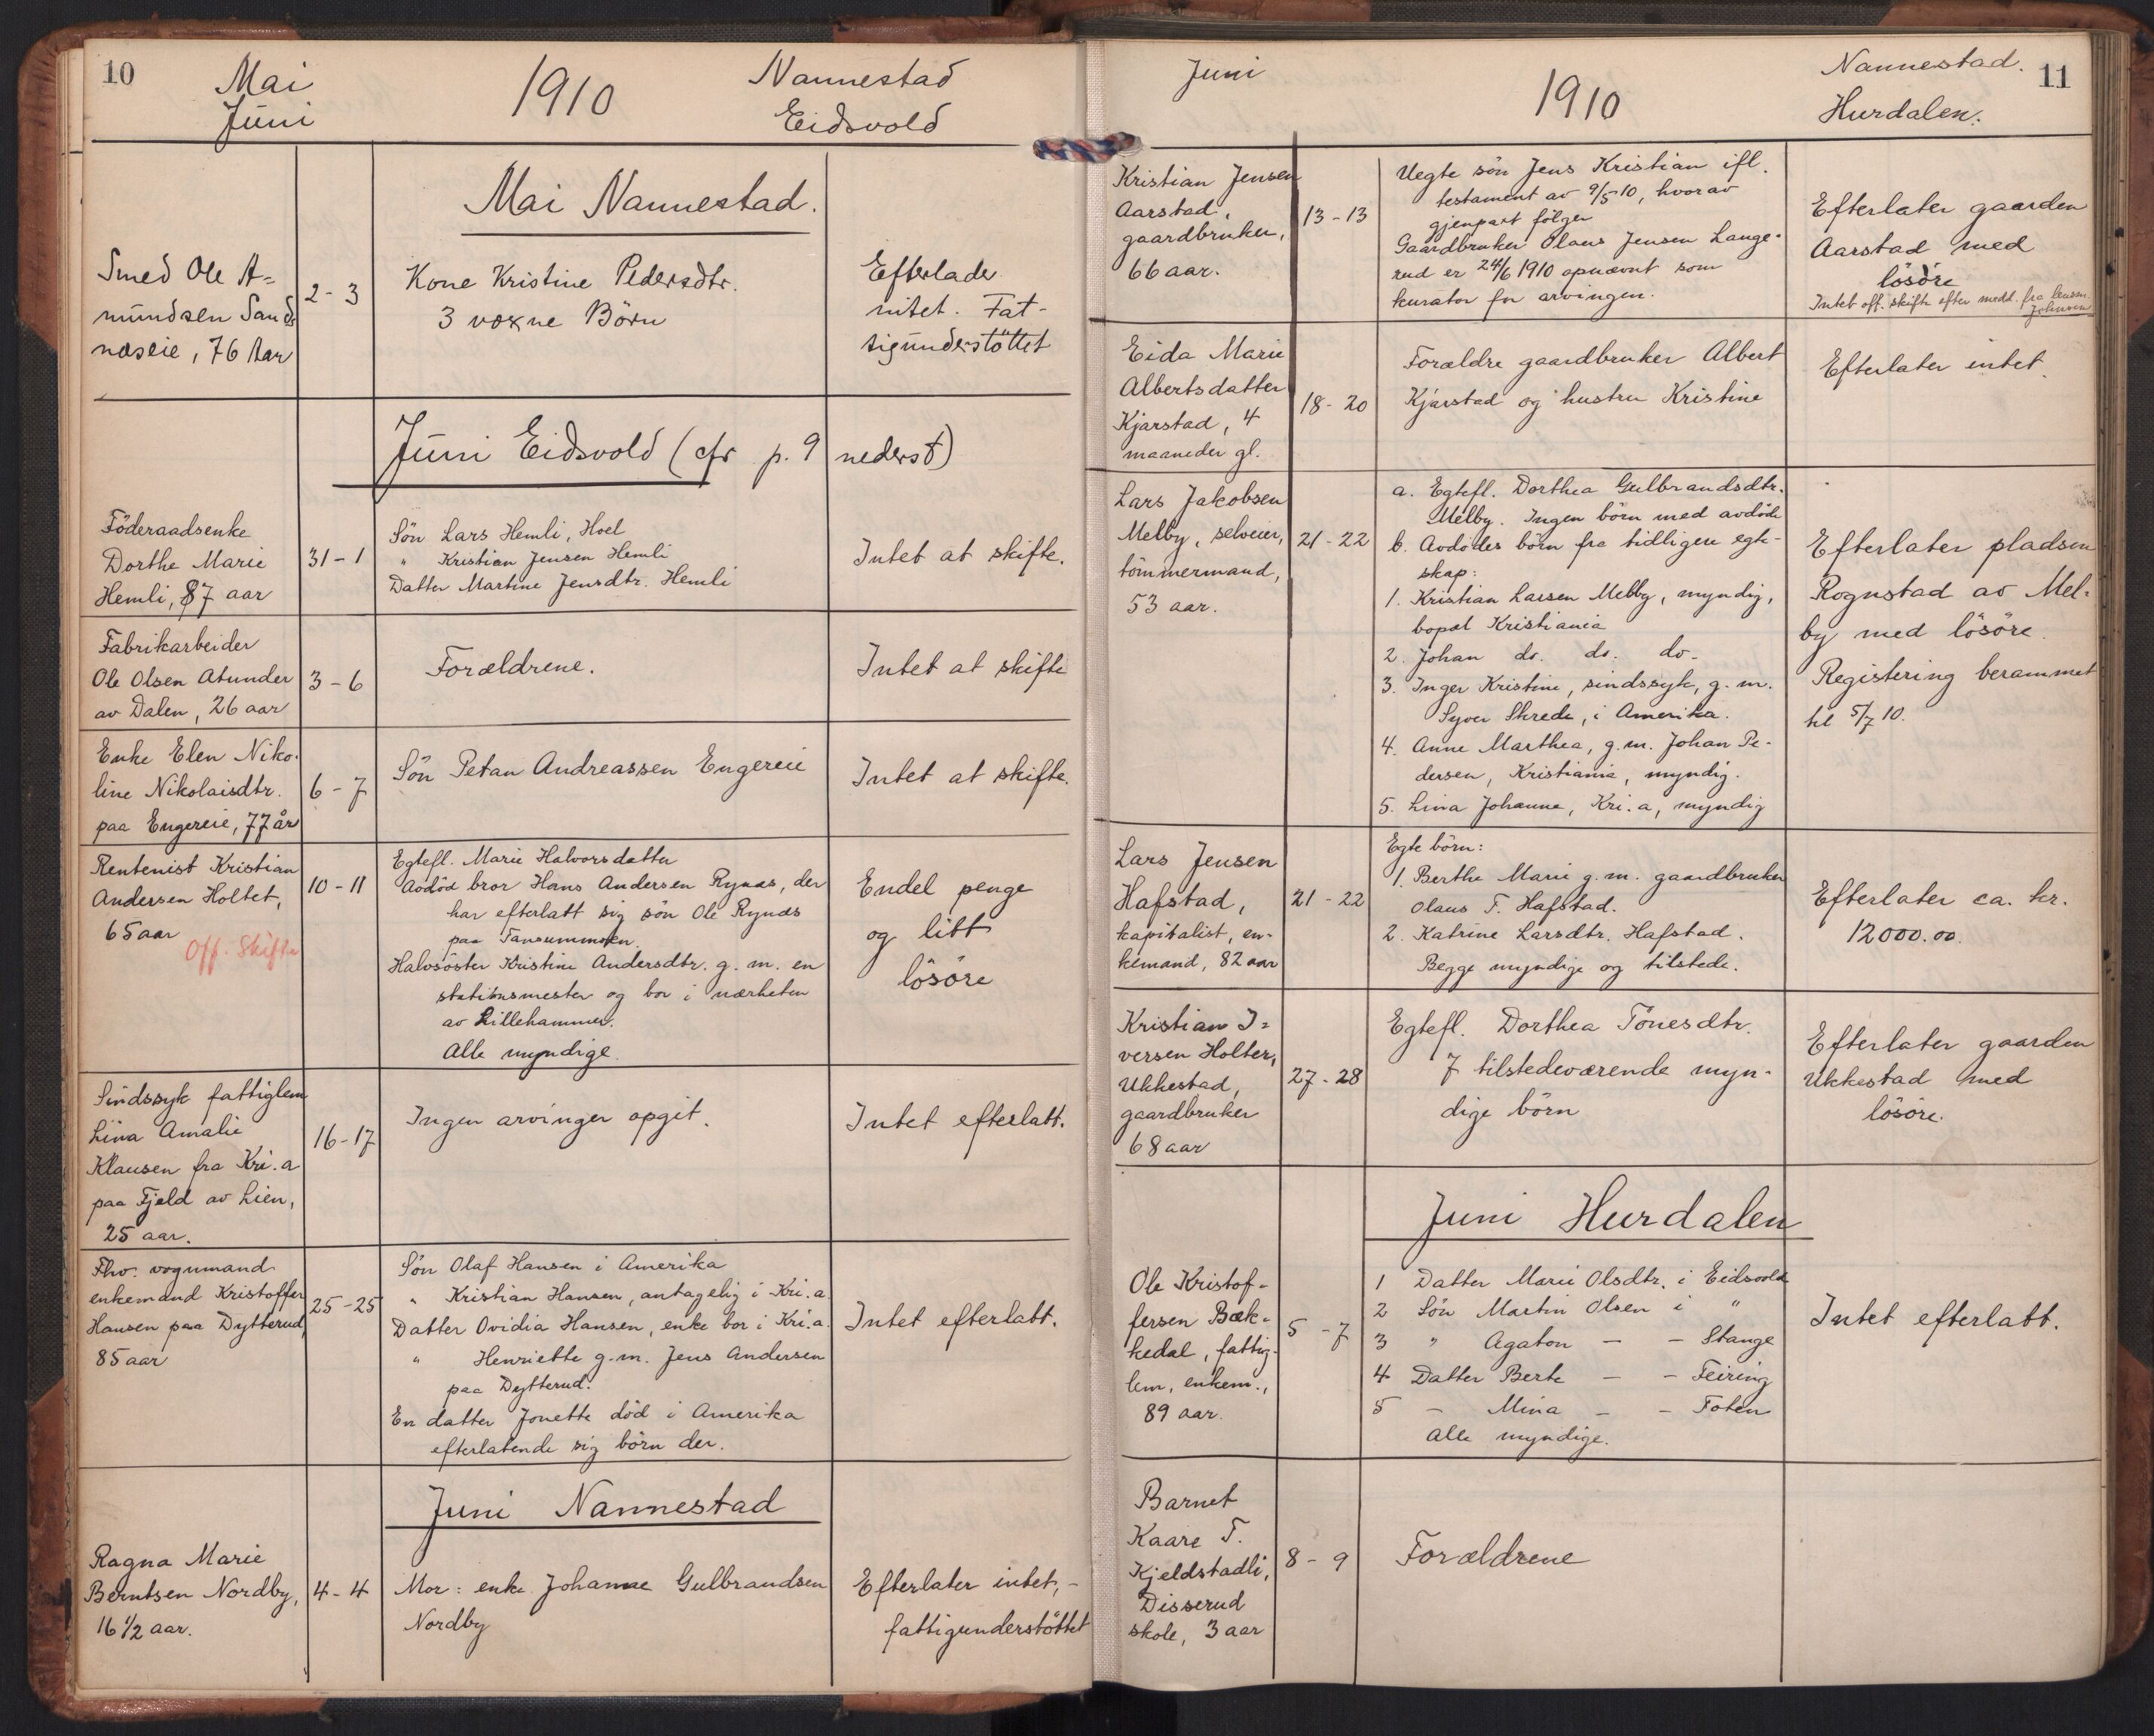 10
Mai
Juni
1910
Nannestad
Eidsvold
Mai Nannestad.
Smed Ole A=
mundsen Sands
næseie, 76 Aar
2 - 3
Kone Kristine Pedersdtr.
3 voxne Börn
Efterlader
intet. Fat-
tigunderstöttet
Juni Eidsvold (cfr p. 9 nederst)
Föderaadsenke
Dorthe Marie
Hemli, 87 aar
31 - 1
Sön Lars Hemli, Hoel
" Kristian Jensen Hemli
Datter Martine Jensdtr. Hemli
Intet at skifte.
Fabrikarbeider
Ole Olsen Atunder
av Dalen, 26 aar
3 - 6
Forældrene.
Intet at skifte
Enke Elen Niko-
line Nikolaisdtr.
paa Engereie, 77 år
6 - 7
Sön Petan Andreassen Engereie
Intet at skifte.
Rentenist Kristian
Andersen Holtet,
65 aar
Off. Skifte
10 - 11
Egtefl. Marie Halvorsdatter
Avdöd bror Hans Andersen Rynas, der
har efterlatt sig sön Ole Rynas
paa Tansummoen.
Halvsöster Kristine Andersdtr. g. m. en
stationsmester og bor i nærheten
av Lillehammer.
Alle myndige.
Endel penge
og litt
lösöre
Sindssyk fattiglem
Lina Amalie
Klausen fra Kri.a
paa Fjeld av Lien,
25 aar.
16 - 17
Ingen arvinger opgit.
Intet efterlatt.
Fhv. vognmand
enkemand Kristoffer
Hansen paa Dytterud,
85 aar
25 - 25
Sön Olaf Hansen i Amerika
" Kristian Hansen, antagelig i Kri.a
Datter Ovidia Hansen, enke bor i Kri.a
" Henriette g.m. Jens Andersen
paa Dytterud.
En datter Jonette död i Amerika
efterlatende sig börn der.
Intet efterlatt.
Juni Nannestad
Ragna Marie
Berntsen Nordby,
16 1/2 aar.
4 - 4
Mor: enke Johanne Gulbrandsen
Nordby
Efterlater intet, -
fattigunderstöttet
Juni
1910
Nannestad.
Hurdalen.
11
Kristian Jensen
Aarstad,
gaardbruker,
66 aar.
13 - 13
Uegte sön Jens Kristian ifl.
testament av 9/5 10, hvorav
gjenpart fölger
Gaardbruker Olaus Jensen Lange-
rud er 24/6 1910 opnævnt som
kurator for arvingen.
Efterlater gaarden
Aarstad med
lösöre
Intet off. skifte efter medd. fra lensm.
Johnsen
Eida Marie
Albertsdatter
Kjærstad, 4
maaneder gl.
18 - 20
Forældre gaardbruker Albert
Kjærstad og hustru Kristine
Efterlater intet.
Lars Jakobsen
Melby, selveier,
tömmermand,
53 aar.
21 - 22
a. Egtefl. Dorthea Gulbrandsdtr.
Melby. Ingen börn med avdöde
b. Avdödes börn fra tidligere egte-
skap:
1. Kristian Larsen Melby, myndig,
bopæl Kristiania
2. Johan do. do. do-
3. Inger Kristine, sindssyk, g. m.
Syver Skrede, i Amerika.
4. Anne Marthea, g. m. Johan Pe-
dersen, Kristiania, myndig.
5. Lina Johanne, Kri.a, myndig
Efterlater pladsen
Rognstad av Mel-
by med lösöre.
Registering berammet
til 5/7 10.
Lars Jensen
Hafstad,
kapitalist, en-
kemand, 82 aar
21 - 22
Egte börn:
1. Berthe Marie g. m. gaardbruker
Olaus T. Hafstad.
2. Katrine Larsdtr. Hafstad.
Begge myndige og tilstede.
Efterlater ca. kr.
12000.00.
Kristian I=
versen Holter,
Ukkestad,
gaardbruker
68 aar
27 - 28
Egtefl. Dorthea Tönesdtr.
7 tilstedeværende myn-
dige börn
Efterlater gaarden
Ukkestad med
lösöre.
Juni Hurdalen
Ole Kristof-
fersen Bæk-
kedal, fattig-
lem, enkem.,
89 aar.
5 - 7
1 Datter Marie Olsdtr. i Eidsvold
2 Sön Martin Olsen i "
3 " Agaton - - Stange
4 Datter Berte - - Feiring
5 - Mina - - Toten
Alle myndige.
Intet efterlatt.
Barnet
Kaare T.
Kjeldstadli,
Disserud
skole, 3 aar
8 - 9
Forældrene